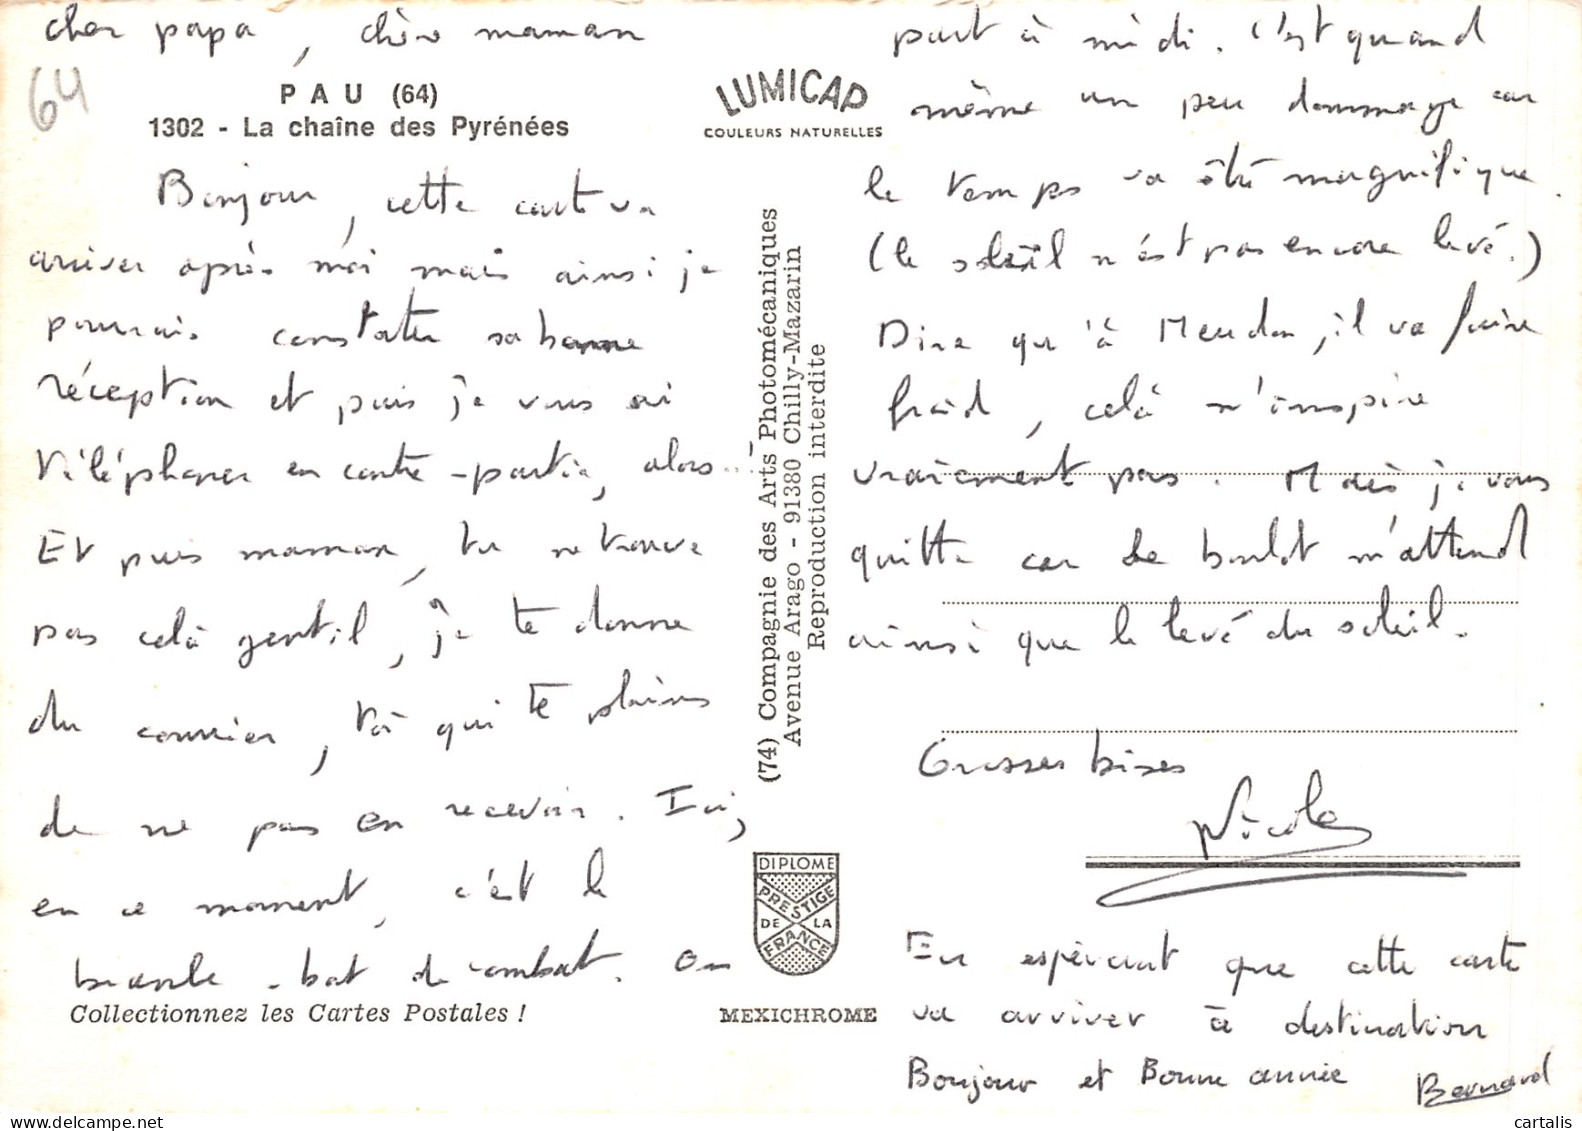 cher papa, chère maman
64
PAU (64)
1302 - La chaîne des Pyrénées
Bonjour, cette carte va
arriver après moi mais ainsi je
pourrais constater sa bonne
réception et puis je vous ai
téléphoner en contre-partie, alors...!
Et puis maman, tu ne trouve
pas celà gentil, je te donne
du courrier, toi qui te plains
de ne pas en recevoir. Ici,
en ce moment, c'est le
branle-bat de combat. On
Collectionnez les Cartes Postales !
LUMICAP
COULEURS NATURELLES
(74) Compagnie des Arts Photomécaniques
Avenue Arago - 91380 Chilly-Mazarin
Reproduction interdite
DIPLOME
PRESTIGE
DE LA
FRANCE
MEXICHROME
part à midi. C'est quand
même un peu dommage car
le temps va être magnifique.
(le soleil n'est pas encore levé.)
Dire qu'à Meudon, il va faire
froid, celà n'inspire
vraiement pas. Mais je vous
quitte car le boulot m'attend
ainsi que le levé du soleil.
Grosses bises
Nicole
En espérant que cette carte
va arriver à destination
Bonjour et Bonne année Bernard
cartalis